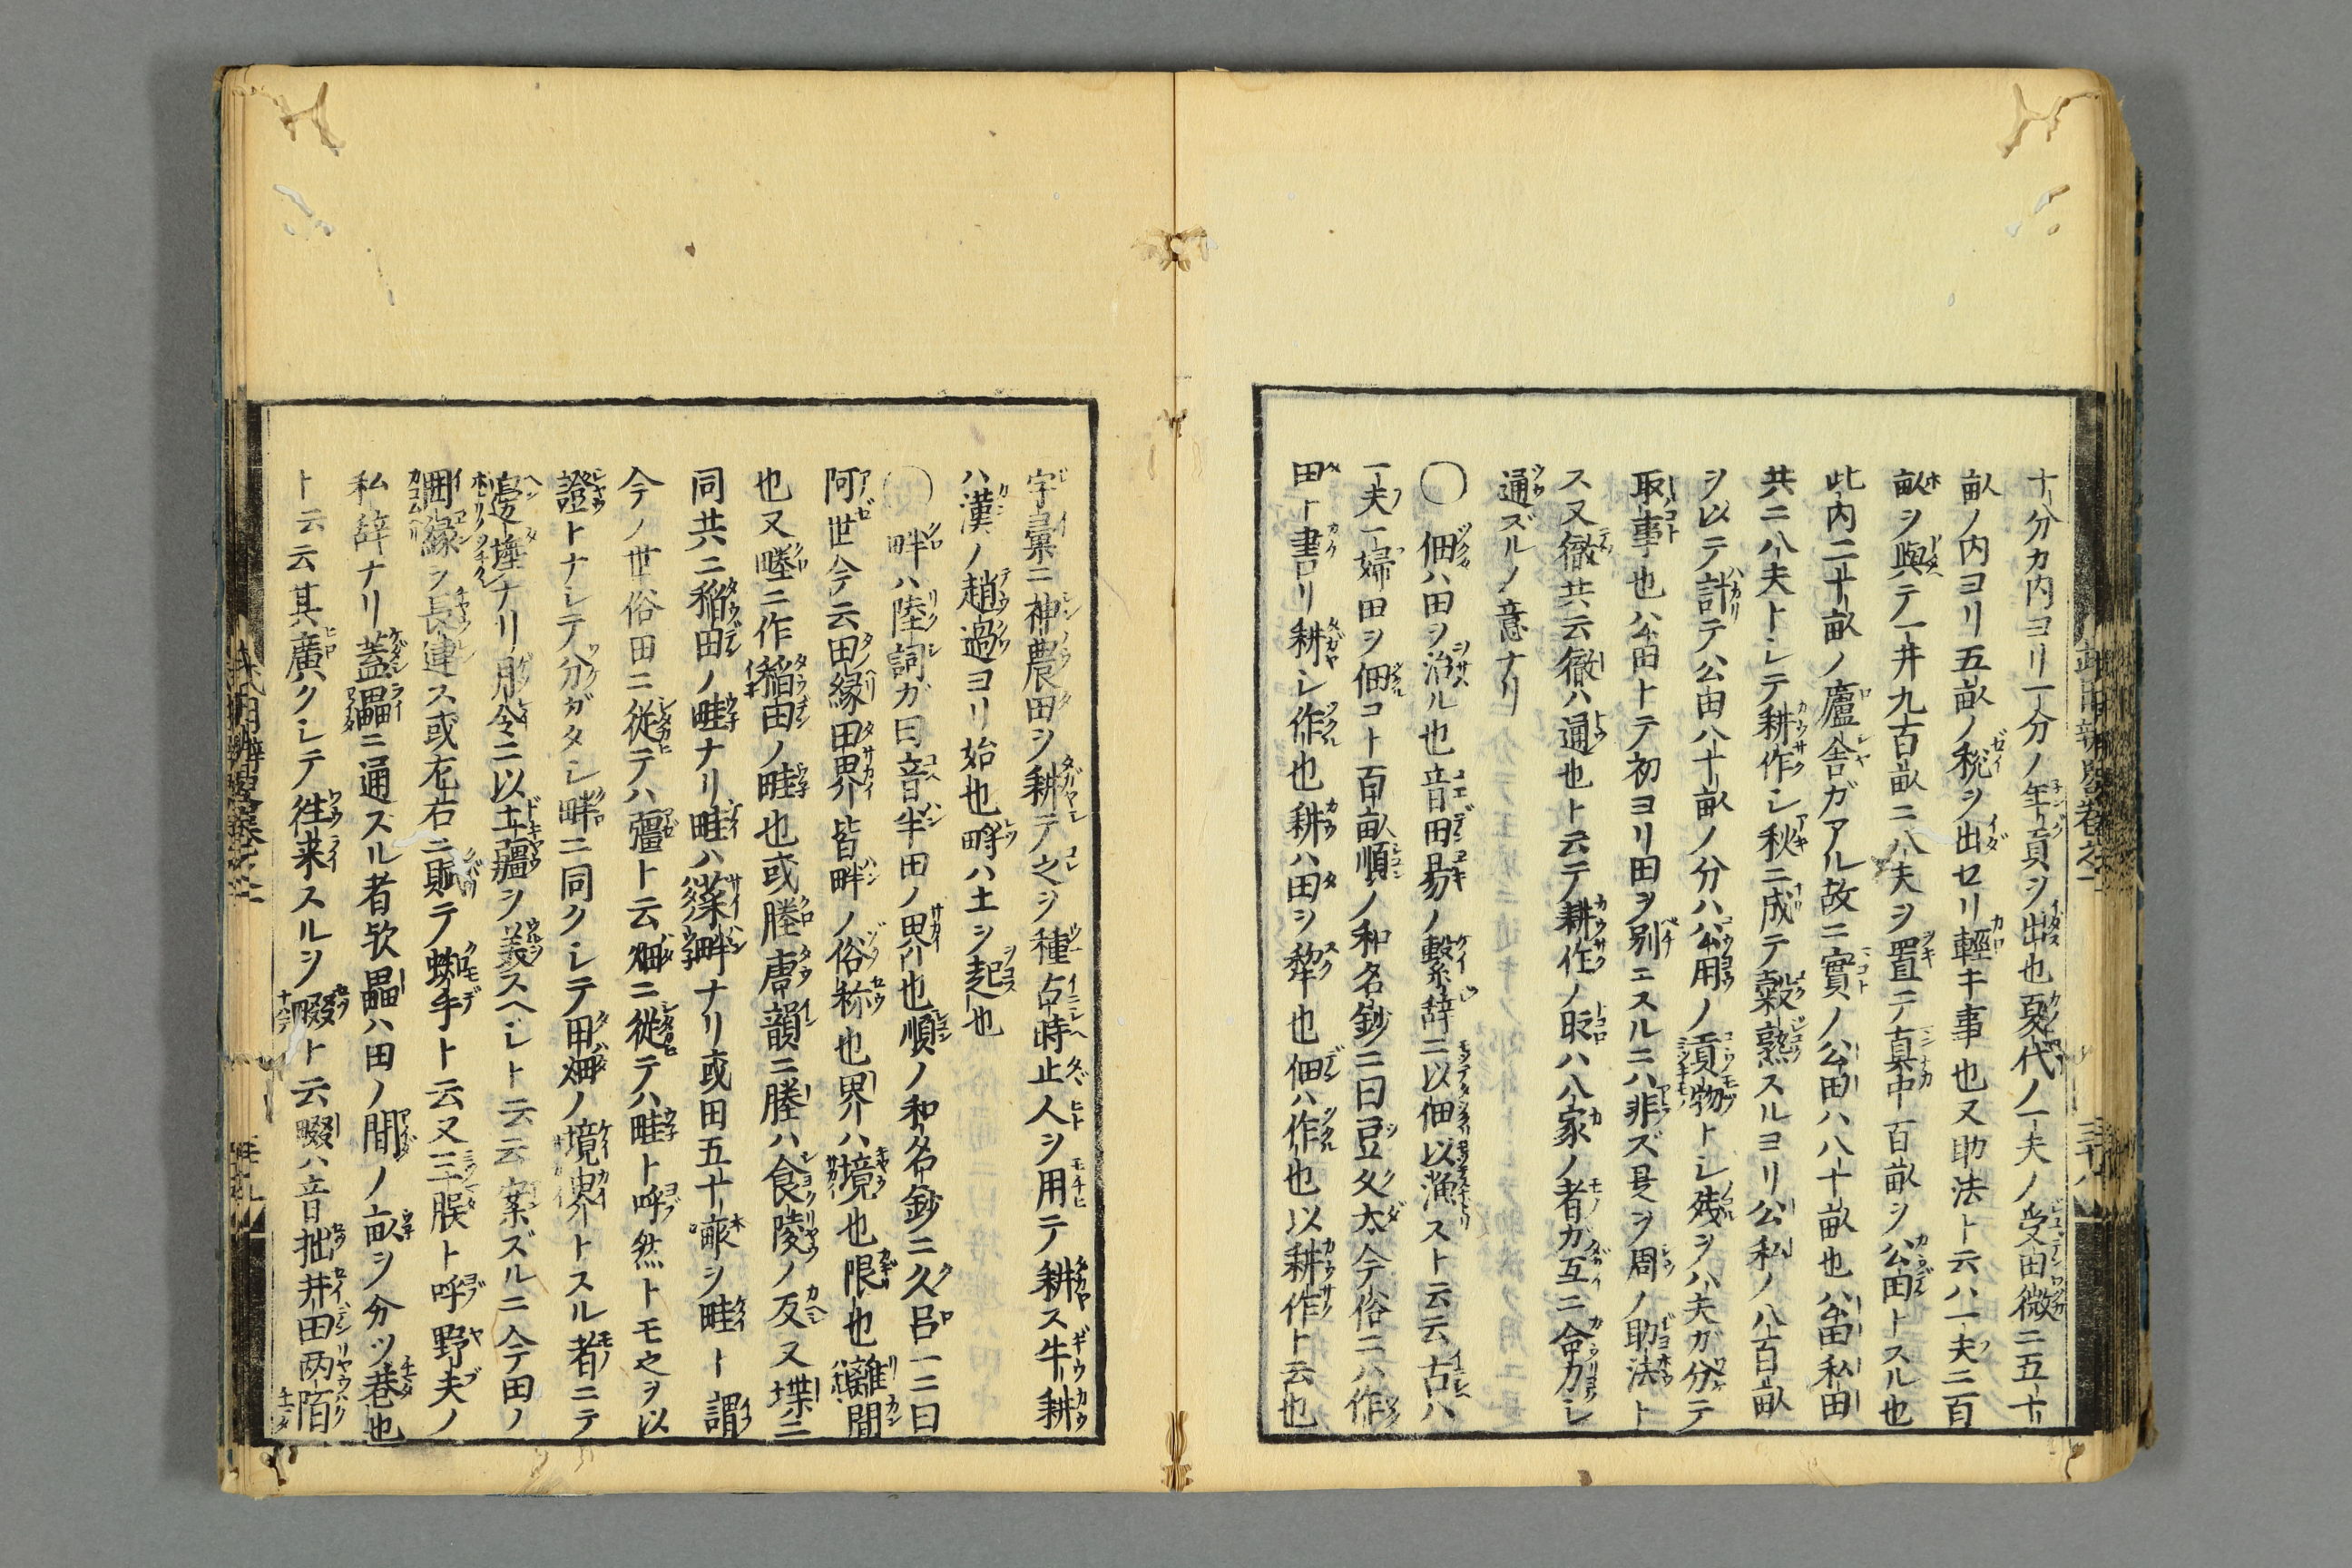 十分カ内ヨリ一分ノ年貢ヲ出也夏代ノ一夫ノ受田微ニ五十
畝ノ内ヨリ五畝ノ税ヲ出セリ輕キ事也又助法ト云ハ一夫ニ百
畝ヲ與テ一井九百畝ニ八夫ヲ置テ真中一百畝ヲ公田トスル也
此内二十畝ノ廬舎ガアル故ニ實ノ公田ハ八十畝也公田私田
共ニ八夫トシテ耕作シ秋ニ成テ穀熟スルヨリ公私ノ八百畝
ヲ以テ計テ公田八十畝ノ分ハ公用ノ貢物トシ残ヲ八夫ガ分テ
取事也公田トテ初ヨリ田ヲ別ニスルニハ非ズ是ヲ周ノ助法ト
ス又徹共云徹ハ通也ト云テ耕作ノ時ハ八家ノ者ガ互ニ合力シ
通ズルノ意ナリ
〇 佃ハ田ヲ治ル也音田易ノ繋辞ニ以佃以漁スト云云古ハ
一夫一婦田ヲ佃コト百畝順ノ和名鈔ニ曰豆久太今俗ニハ作
田ト書リ耕シ作也耕ハ田ヲ犂也佃ハ作也以耕作ト云也
字彙ニ神農田ヲ耕テ之ヲ種古時止人ヲ用テ耕ス牛耕
ハ漢ノ趙過ヨリ始也畤ハ土ヲ起也
〇 畔ハ陸詞ガ曰音半田ノ界也順ノ和名鈔ニ久呂一ニ曰
阿世今云田縁田界皆畔ノ俗称也界ハ境也限也離間
也又塍ニ作稲田ノ畦也或塍唐韻ニ塍ハ食陵ノ反又堘ニ
同共ニ稲田ノ畦ナリ畦ハ菜畔ナリ或田五十畝ヲ畦ト謂
今ノ世俗田ニ従テハ疆ト云畑ニ従テハ畦ト呼然トモ之ヲ以
證トナシテ分ガタシ畔ニ同クシテ田畑ノ境界トスル者ニテ
邊埵ナリ月令ニ以土疆ヲ美スヘシト云云案ズルニ今田ノ
囲縁ヲ長連ス或左右ニ賦テ蜘手ト云又三腂ト呼野夫ノ
私辞ナリ蓋畾ニ通ズル者欤畾ハ田ノ間ノ畝ヲ分ツ巷也
ト云云其廣クシテ徃来スルヲ畷ト云畷ハ音拙井田両陌